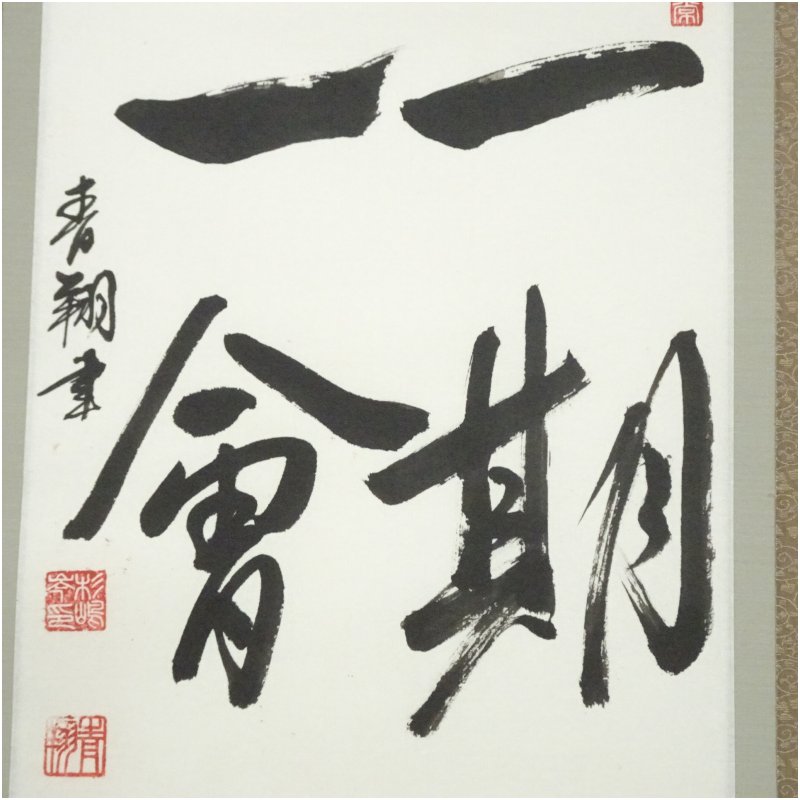 一期
一會
青翔書